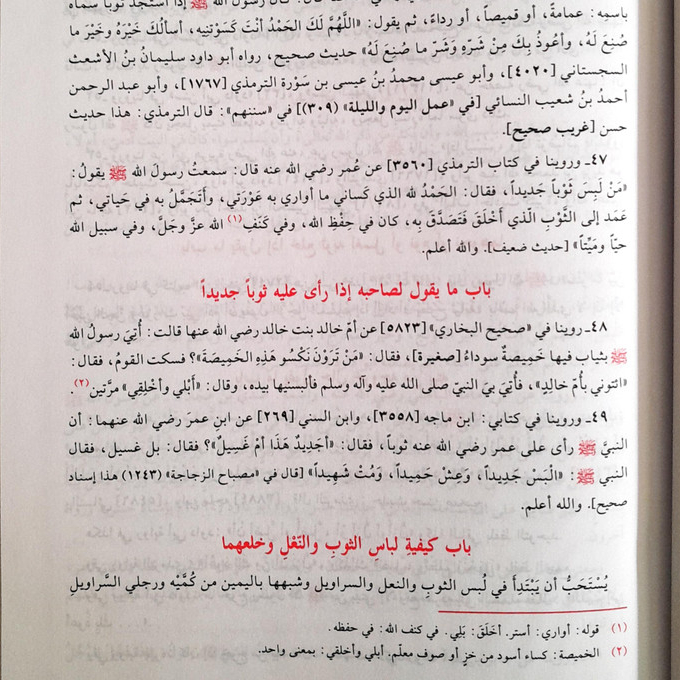 باسمِه: عمامةً، أو قميصاً، أو رداءً، ثم يقول: «اللَّهُمَّ لَكَ الحَمْدُ أنْتَ كَسَوْتَنِيهِ، أسألُكَ خَيْرَهُ وخَيْرَ ما
صُنِعَ لَهُ، وأعُوذُ بِكَ مِنْ شَرِّهِ وَشَرِّ ما صُنِعَ لَهُ» حديث صحيح، رواه أبو داود سليمانُ بنُ الأشعث
السجستاني [٤٠٢٠]، وأبو عيسى محمدُ بنُ عيسى بن سَوْرة الترمذي [١٧٦٧]، وأبو عبد الرحمن
أحمدُ بنُ شعيب النسائي [في «عمل اليوم والليلة» (٣٠٩)] في «سننهم»: قال الترمذي: هذا حديث
حسن [غريب صحيح].
٤٧ـ وروينا في كتاب الترمذي [٣٥٦٠] عن عُمر رضي الله عنه قال: سمعتُ رسولَ الله ﷺ يقولُ:
«مَن لَبِسَ ثَوْباً جَديداً، فقال: الحَمْدُ لله الذي كَساني ما أواري به عَوْرَتي، وأتَجَمَّلُ به في حَياتي، ثم
عَمَد إلى الثَّوْبِ الَّذي أخْلَقَ فَتَصَدَّقَ بِهِ، كان في حِفْظِ الله، وفي كَنَفِ(١) الله عزَّ وجَلَّ، وفي سبيل الله
حيّاً ومَيّتاً» [حديث ضعيف]. والله أعلم.
باب ما يقول لصاحبه إذا رأى عليه ثوباً جديداً
٤٨ـ روينا في «صحيح البخاري» [٥٨٢٣] عن أمّ خالد بنت خالد رضي الله عنها قالت: أُتِيَ رسولُ الله
ﷺ بثياب فيها خَمِيصةٌ سوداءُ [صغيرة]، فقال: «مَنْ تَرَوْنَ نَكْسُو هَذِهِ الخَمِيصَةَ»؟ فسكت القومُ، فقال:
«ائتوني بأُمِّ خالدٍ»، فأُتِيَ بيَ النبيّ صلى الله عليه وآله وسلم فألبسنيها بيده، وقال: «أبْلي وأخْلِقِي» مرَّتين(٢).
٤٩ـ وروينا في كتابي: ابن ماجه [٣٥٥٨]، وابن السني [٢٦٩] عن ابن عمرَ رضي الله عنهما: أن
النبيَّ ﷺ رأى على عمر رضي الله عنه ثوباً، فقال: «أجَدِيدٌ هَذَا أمْ غَسِيلٌ»؟ فقال: بل غسيل، فقال
النبي ﷺ: «الْبَسْ جَديداً، وَعِشْ حَمِيداً، وَمُتْ شَهِيداً» [قال في «مصباح الزجاجة» (١٢٤٣) هذا إسناد
صحيح]. والله أعلم.
باب كيفيةِ لباسِ الثوبِ والنَّعْلِ وخلعهما
يُسْتَحَبُّ أن يَبْتَدِأَ في لُبس الثوبِ والنعل والسراويل وشبهها باليمين من كُمَّيْه ورجلي السَّراويلِ
(١) قوله: أواري: أستر. أخلَقَ: بَلِي. في كنف الله: في حفظه.
(٢) الخميصة: كساء أسود من خزٍ أو صوف معلّم. أبلي وأخلقي: بمعنى واحد.